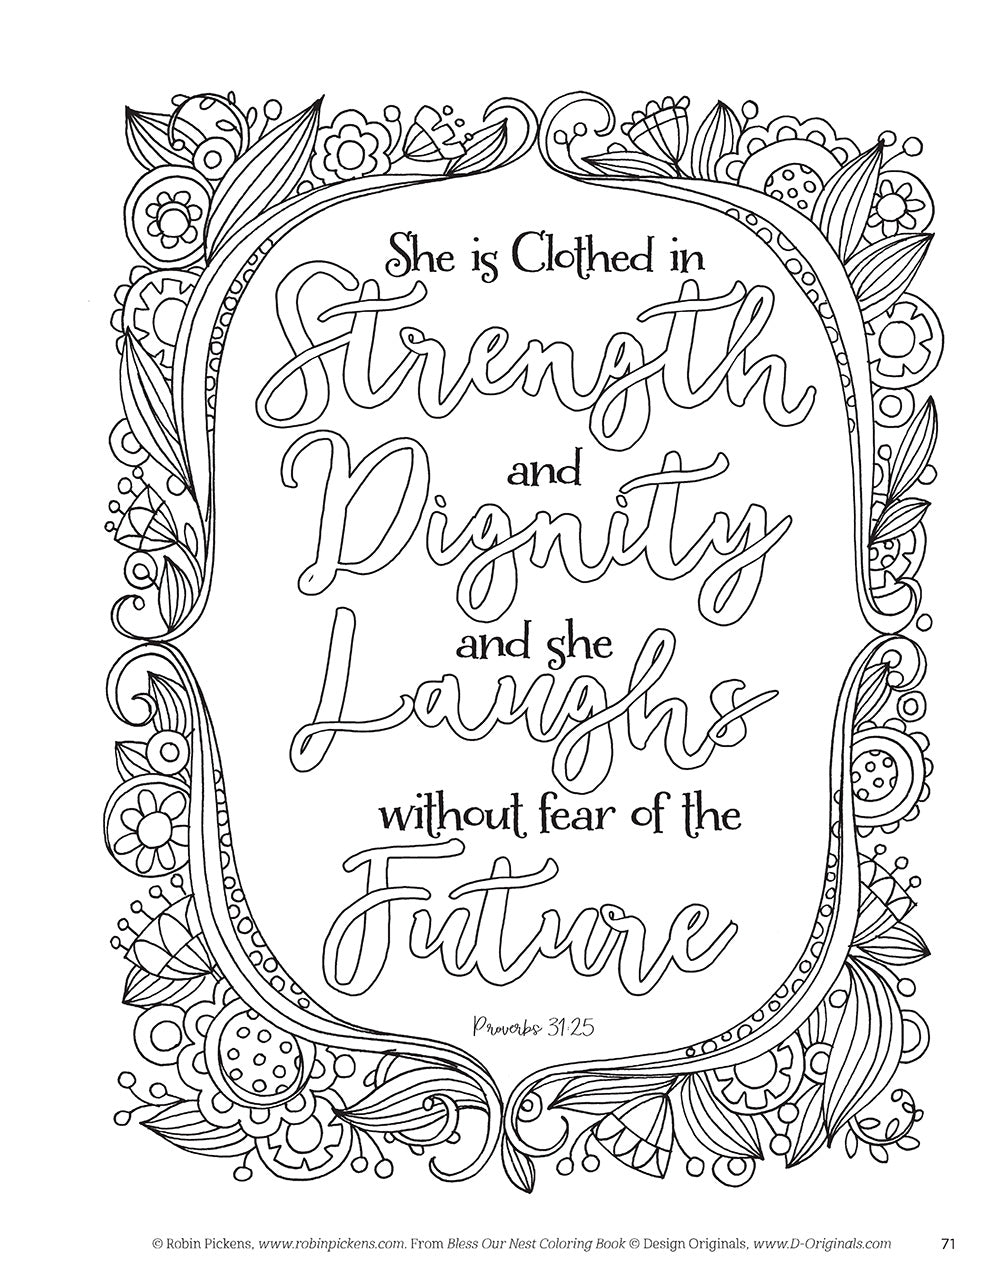 She is Clothed in
Strength
and
Dignity
and she
Laughs
without fear of the
Future
Proverbs 31:25
© Robin Pickens, www.robinpickens.com. From Bless Our Nest Coloring Book © Design Originals, www.D-Originals.com 71